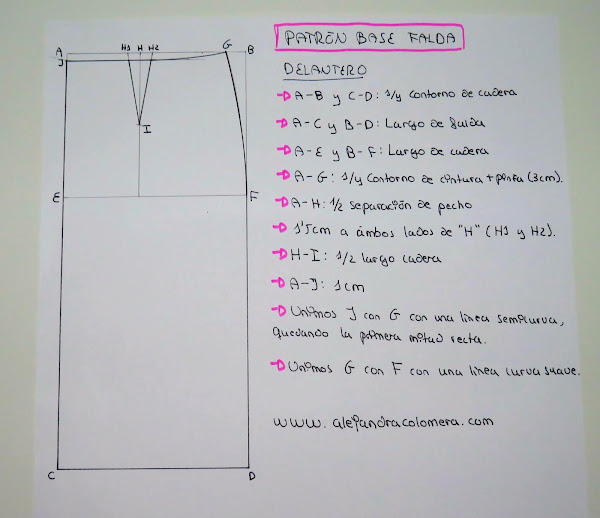 PATRÓN BASE FALDA
DELANTERO
A-B y C-D: 1/4 contorno de cadera
A-C y B-D: Largo de falda
A-E y B-F: Largo de cadera
A-G: 1/4 contorno de cintura + pinza (3cm).
A-H: 1/2 separación de pecho
1'5cm a ámbos lados de "H" (H1 y H2).
H-I: 1/2 largo cadera
A-J: 1cm
Unimos J con G con una línea semicurva,
quedando la primera mitad recta.
Unimos G con F con una línea curva suave.
www.alejandracolomera.com
A H1 H H2 G B
J
I
E F
C D